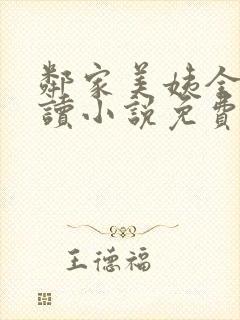 鄰家美姨全
讀小說免費
王德福